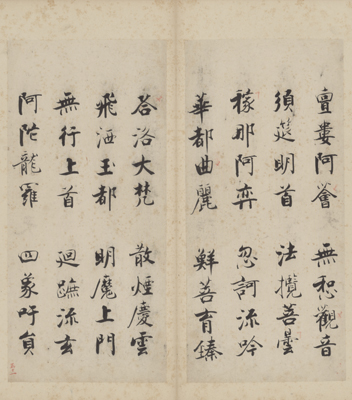 亶婁阿薈 無惒觀音
須筵明首 法攬菩曇
稼那阿弈 忽訶流吟
華都曲麗 鮮菩育臻
荅洛大梵 散煙慶雲
飛洒玉都 明魔上門
無行上首 迴蹠流玄
阿陁龍羅 四象吁員